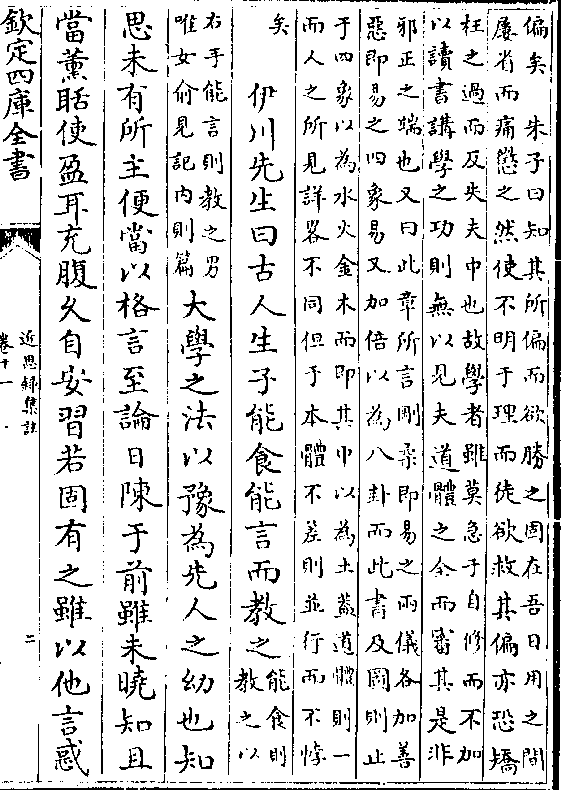 偏矣　朱子曰知其所偏而欲勝之固在吾日用之間
屢省而痛懲之然使不明于理而徒欲救其偏亦恐矯
枉之過而反失夫中也故學者雖莫急于自修而不加
以讀書講學之功則無以見夫道體之全而審其是非
邪正之端也又曰此章所言剛柔即易之兩儀各加善
惡即易之四象易又加倍以為八卦而此書及圖則止
于四象以為水火金木而即其中以為土蓋道體則一
而人之所見詳畧不同但于本體不差則並行而不悖
矣
伊川先生曰古人生子能食能言而教之
能食則
教之以
右手能言則教之男
唯女俞見記内則篇
大學之法以豫為先人之幼也知
思未有所主便當以格言至論日陳于前雖未曉知且
當薰聒使盈耳充腹久自安習若固有之雖以他言惑
欽定四庫全書
近思録集註
卷十一
二